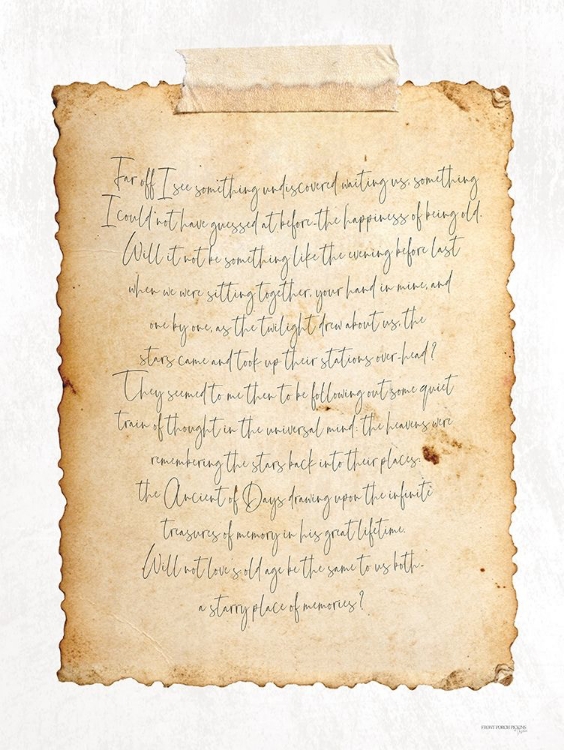 Far off I see something undiscovered waiting us, something
I could not have guessed at before-the happiness of being old.
Will it not be something like the evening before last
when we were sitting together, your hand in mine, and
one by one, as the twilight drew about us, the
stars came and took up their stations over-head?
They seemed to me then to be following out some quiet
train of thought in the universal mind; the heavens were
remembering the stars back into their places:
the Ancient of Days drawing upon the infinite
treasures of memory in his great lifetime.
Will not love's old age be the same to us both-
a starry place of memories?
FRONT PORCH PICKINS